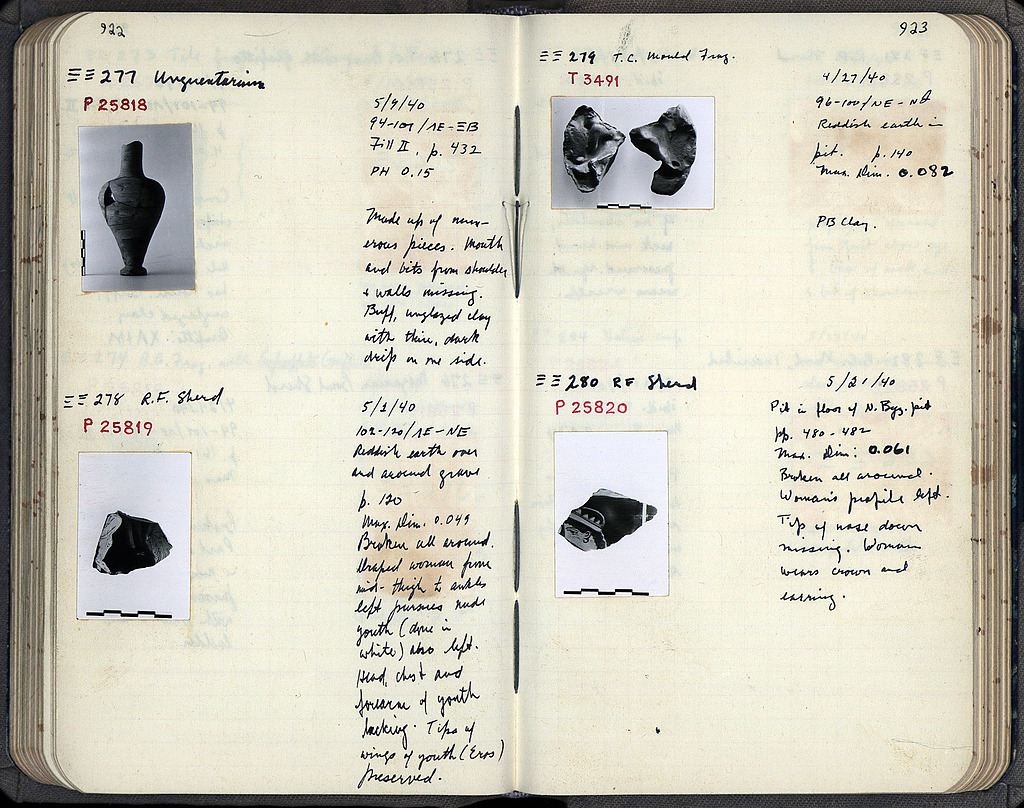 922
ΞΞ 277 Unguentarium
P 25818
5/9/40
94-101/ΛΕ-ΞΒ
Fill II, p. 432
PH 0.15
Made up of num-
erous pieces. Mouth
and bits from shoulder
+ walls missing.
Buff, unglazed clay
with thin, dark
drip on one side.
ΞΞ 278 R.F. Sherd
P 25819
5/1/40
102-120/ΛΕ-ΝΕ
Reddish earth over
and around grave
p. 120
Max. Dim. 0.049
Broken all around.
Draped woman from
mid-thigh to ankles
left pursues nude
youth (done in
white) also left.
Head, chest and
forearm of youth
lacking. Tips of
wings of youth (Eros)
preserved.
923
ΞΞ 279 T.C. Mould Frag.
T 3491
4/27/40
96-100/ΝΕ-
Reddish earth in
pit. p. 140
Max. Dim. 0.082
PB Clay.
ΞΞ 280 RF Sherd
P 25820
5/21/40
Pit in floor of N. Byz. pit
pp. 480-482
Max. Dim: 0.061
Broken all around.
Woman's profile left.
Tip of nose down
missing. Woman
wears crown and
earring.